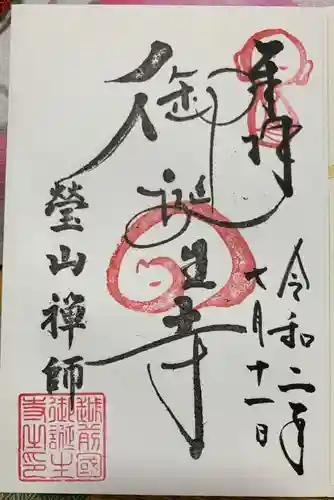 奉拝
令和二年
七月十一日
御誕生寺
瑩山禅師
越前國
御誕生
寺之印